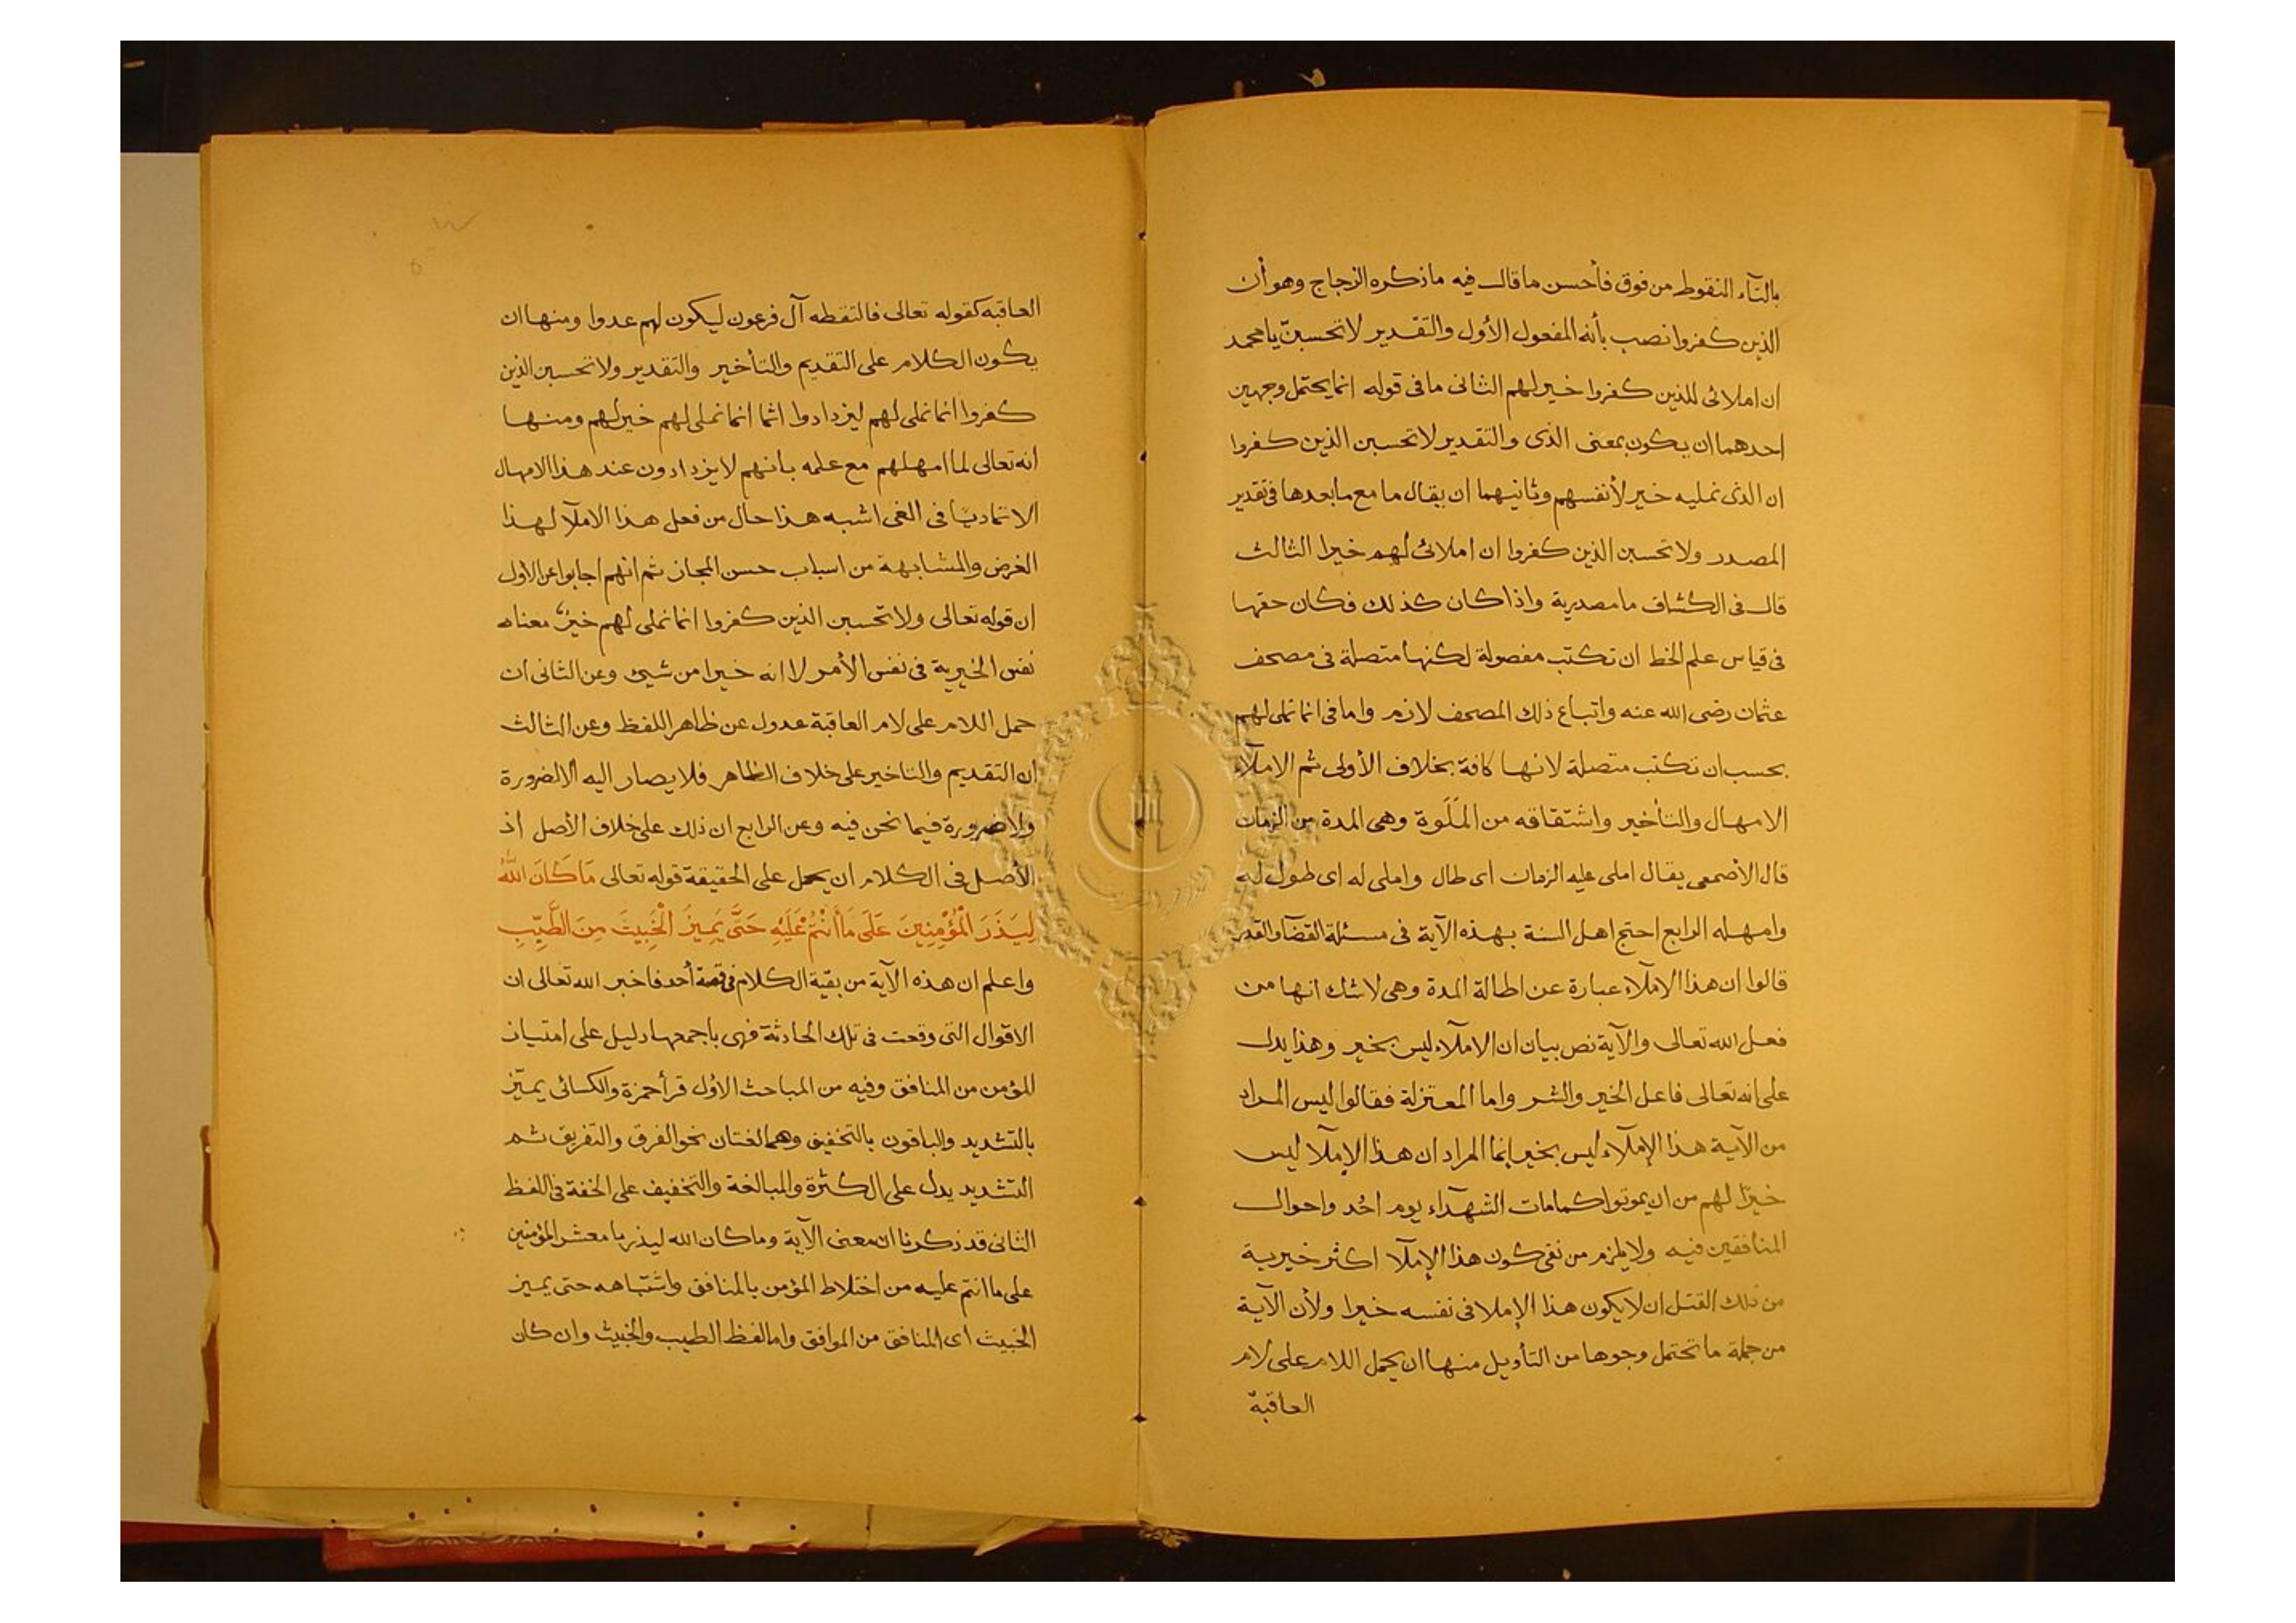 بالتآء النقوط من فوق فأحسن ما قال فيه ما ذكره الزجاج وهو أن
الذين كفروا نصب بأنه المفعول الأول والتقدير لا تحسبنّ يا محمد
ان املائى للذين كفروا خير لهم الثانى ما فى قوله انما يحتمل وجهين
احدهما ان يكون بمعنى الذى والتقدير لا تحسبن الذين كفروا
ان الذى نمليه خير لأنفسهم وثانيهما ان يقال ما مع ما بعدها فى تقدير
المصدر ولا تحسبن الذين كفروا ان املائى لهم خيرا الثالث
قال فى الكشاف ما مصدرية واذا كان كذلك فكان حقها
فى قياس علم الخط ان تكتب مفصولة لكنها متصلة فى مصحف
عثمان رضى الله عنه واتباع ذلك المصحف لازم واما فى انما نملى لهم
بحسب ان تكتب متصلة لانها كافة بخلاف الأولى ثم الاملآء
الامهال والتأخير واشتقاقه من المَلَوة وهى المدة من الزمان
قال الأصمعى يقال املى عليه الزمان اى طال واملى له اى طول له
وامهله الرابع احتج اهل السنة بهذه الآية فى مسئلة القضآ والقدر
قالوا ان هذا الاملآء عبارة عن اطالة المدة وهى لا شك انها من
فعل الله تعالى والآية نص بيان ان الاملآء ليس بخير وهذا يدل
على انه تعالى فاعل الخير والشر واما المعتزلة فقالوا ليس المراد
من الآية هذا الإملآء ليس بخير إنما المراد ان هذا الإملآ ليس
خيرًا لهم من ان يموتوا كمامات الشهدآء يوم احُد واحوال
المنافقين فيه ولا يلزم من نفى كون هذا الإملآ اكثر خيرية
من ذلك القتل ان لا يكون هذا الإملا فى نفسه خيرا ولأن الآية
من جملة ما تحتمل وجوها من التأويل منها ان يحمل اللام على لام
العاقبة
العاقبة كقوله تعالى فالتقطه آل فرعون ليكون لهم عدوا ومنها ان
يكون الكلام على التقديم والتأخير والتقدير ولا تحسبن الذين
كفروا انما نملى لهم ليزدادوا اثما انما نملى لهم خير لهم ومنها
انه تعالى لما امهلهم مع علمه بانهم لا يزدادون عند هذا الامهال
الا تماديًا فى الغى اشبه هذا حال من فعل هذا الاملآ لهذا
الغرض والمشابهة من اسباب حسن المجاز ثم انهم اجابوا عن الاول
ان قوله تعالى ولا تحسبن الذين كفروا انما نملى لهم خيرٌ معناه
نفس الخيرية فى نفس الأمر لا انه خيرا من شيئ وعن الثانى ان
حمل اللام على لام العاقبة عدول عن ظاهر اللفظ وعن الثالث
ان التقديم والتاخير على خلاف الظاهر فلا يصار اليه الا لضرورة
ولا ضرورة فيما نحن فيه وعن الرابع ان ذلك على خلاف الأصل اذ
الأصل فى الكلام ان يحمل على الحقيقة قوله تعالى مَا كَانَ اللَّهُ
لِيَذَرَ الْمُؤْمِنِينَ عَلَى مَا أَنْتُمْ عَلَيْهِ حَتَّى يَمِيزَ الْخَبِيثَ مِنَ الطَّيِّبِ
واعلم ان هذه الآية من بقية الكلام فى قصة أحد فاخبر الله تعالى ان
الاقوال التى وقعت فى تلك الحادثة فهى باجمعها دليل على امتياز
المؤمن من المنافق وفيه من المباحث الاوّل قرأ حمزة والكسائى يميّز
بالتشديد والباقون بالتخفيف وهما لغتان نحو الفرق والتفريق ثم
التشديد يدل على الكثرة والمبالغة والتخفيف على الخفة فى اللفظ
الثانى قد ذكرنا ان معنى الآية وما كان الله ليذر يا معشر المؤمنين
على ما انتم عليه من اختلاط المؤمن بالمنافق واشتباهه حتى يميز
الخبيث اى المنافق من الموافق واما لفظ الطيب والخبيث وان كان